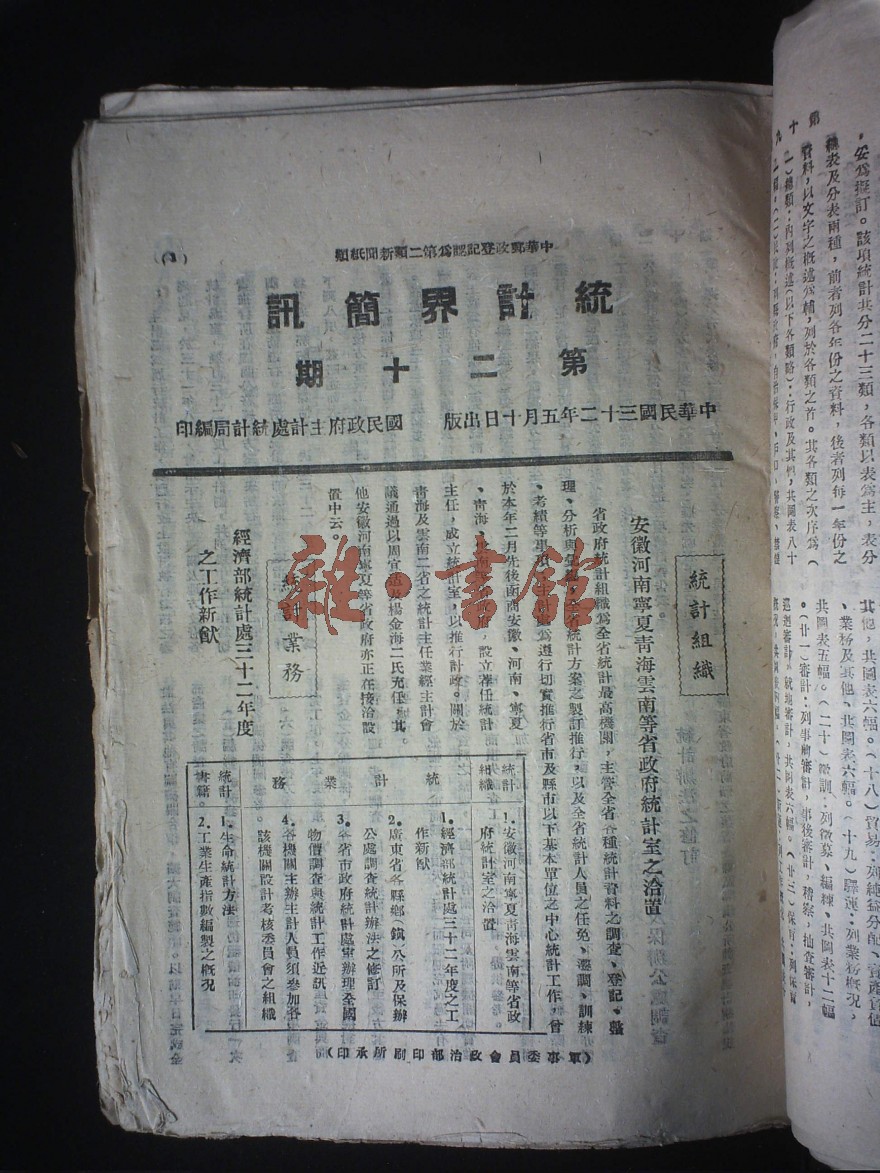 中華郵政登記認爲第二類新聞紙類
（一）
統計界簡訊
第二十期
中華民國三十二年五月十日出版　國民政府主計處統計局編印
統計組織
安徽河南寧夏青海雲南等省政府統計室之洽置
省政府統計組織爲全省統計最高機關，主管全省各種統計資料之調查、登記、整
理、分析與
全省統計方案之製訂推行，以及全省統計人員之任免、遷調、訓練
、考績等事項
爲遵行切實推行省市及縣市以下基本單位之中心統計工作，曾
於本年二月先後函商安徽、河南、寧夏
、青海、
設立專任統計
主任，成立統計室，以推行計政。關於
青海及雲南二省之統計主任業經主計會
議通過以周宜
及楊金海二氏充任，其
他安徽河南寧夏等省政府亦正在接洽設
置中云。
統計業務
經濟部統計處三十二年度
之工作新猷
統計組織
1.安徽河南寧夏青海雲南等省政
府統計室之洽置
統計業務
1.經濟部統計處三十二年度之工
作新猷
2.廣東省各縣鄉（鎮）公所及保辦
公處調查統計辦法之修訂
3.各省市政府統計處室辦理全國
物價調查與統計工作近訊
4.各機關主辦主計人員須參加各
該機關設計考核委員會之組織
統計書籍
1.生命統計方法
2.工業生產指數編製之概況
（軍事委員會政治部印刷所承印）
雜·書館
，妥爲擬訂。該項統計共分二十三類，各類以表爲主，表分
總表及分表兩種，前者列各年份之資料，後者列每一年份之
資料，以文字之概述爲輔，列於各類之首。其各類之次序爲（
一）總類：內列概述（以下各類略）：行政及其他，共圖表八十
其他，共圖表六幅。（十八）貿易：列純益分配、資產負債
、業務及其他、共圖表六幅。（十九）驛運：列業務概況，
共圖表五幅。（二十）徵訓：列徵募、編練、共圖表十二幅
。（廿一）審計：列事前審計，事後審計，稽察，抽查審計，
巡迴審計，就地審計，共圖表六幅。（廿二）